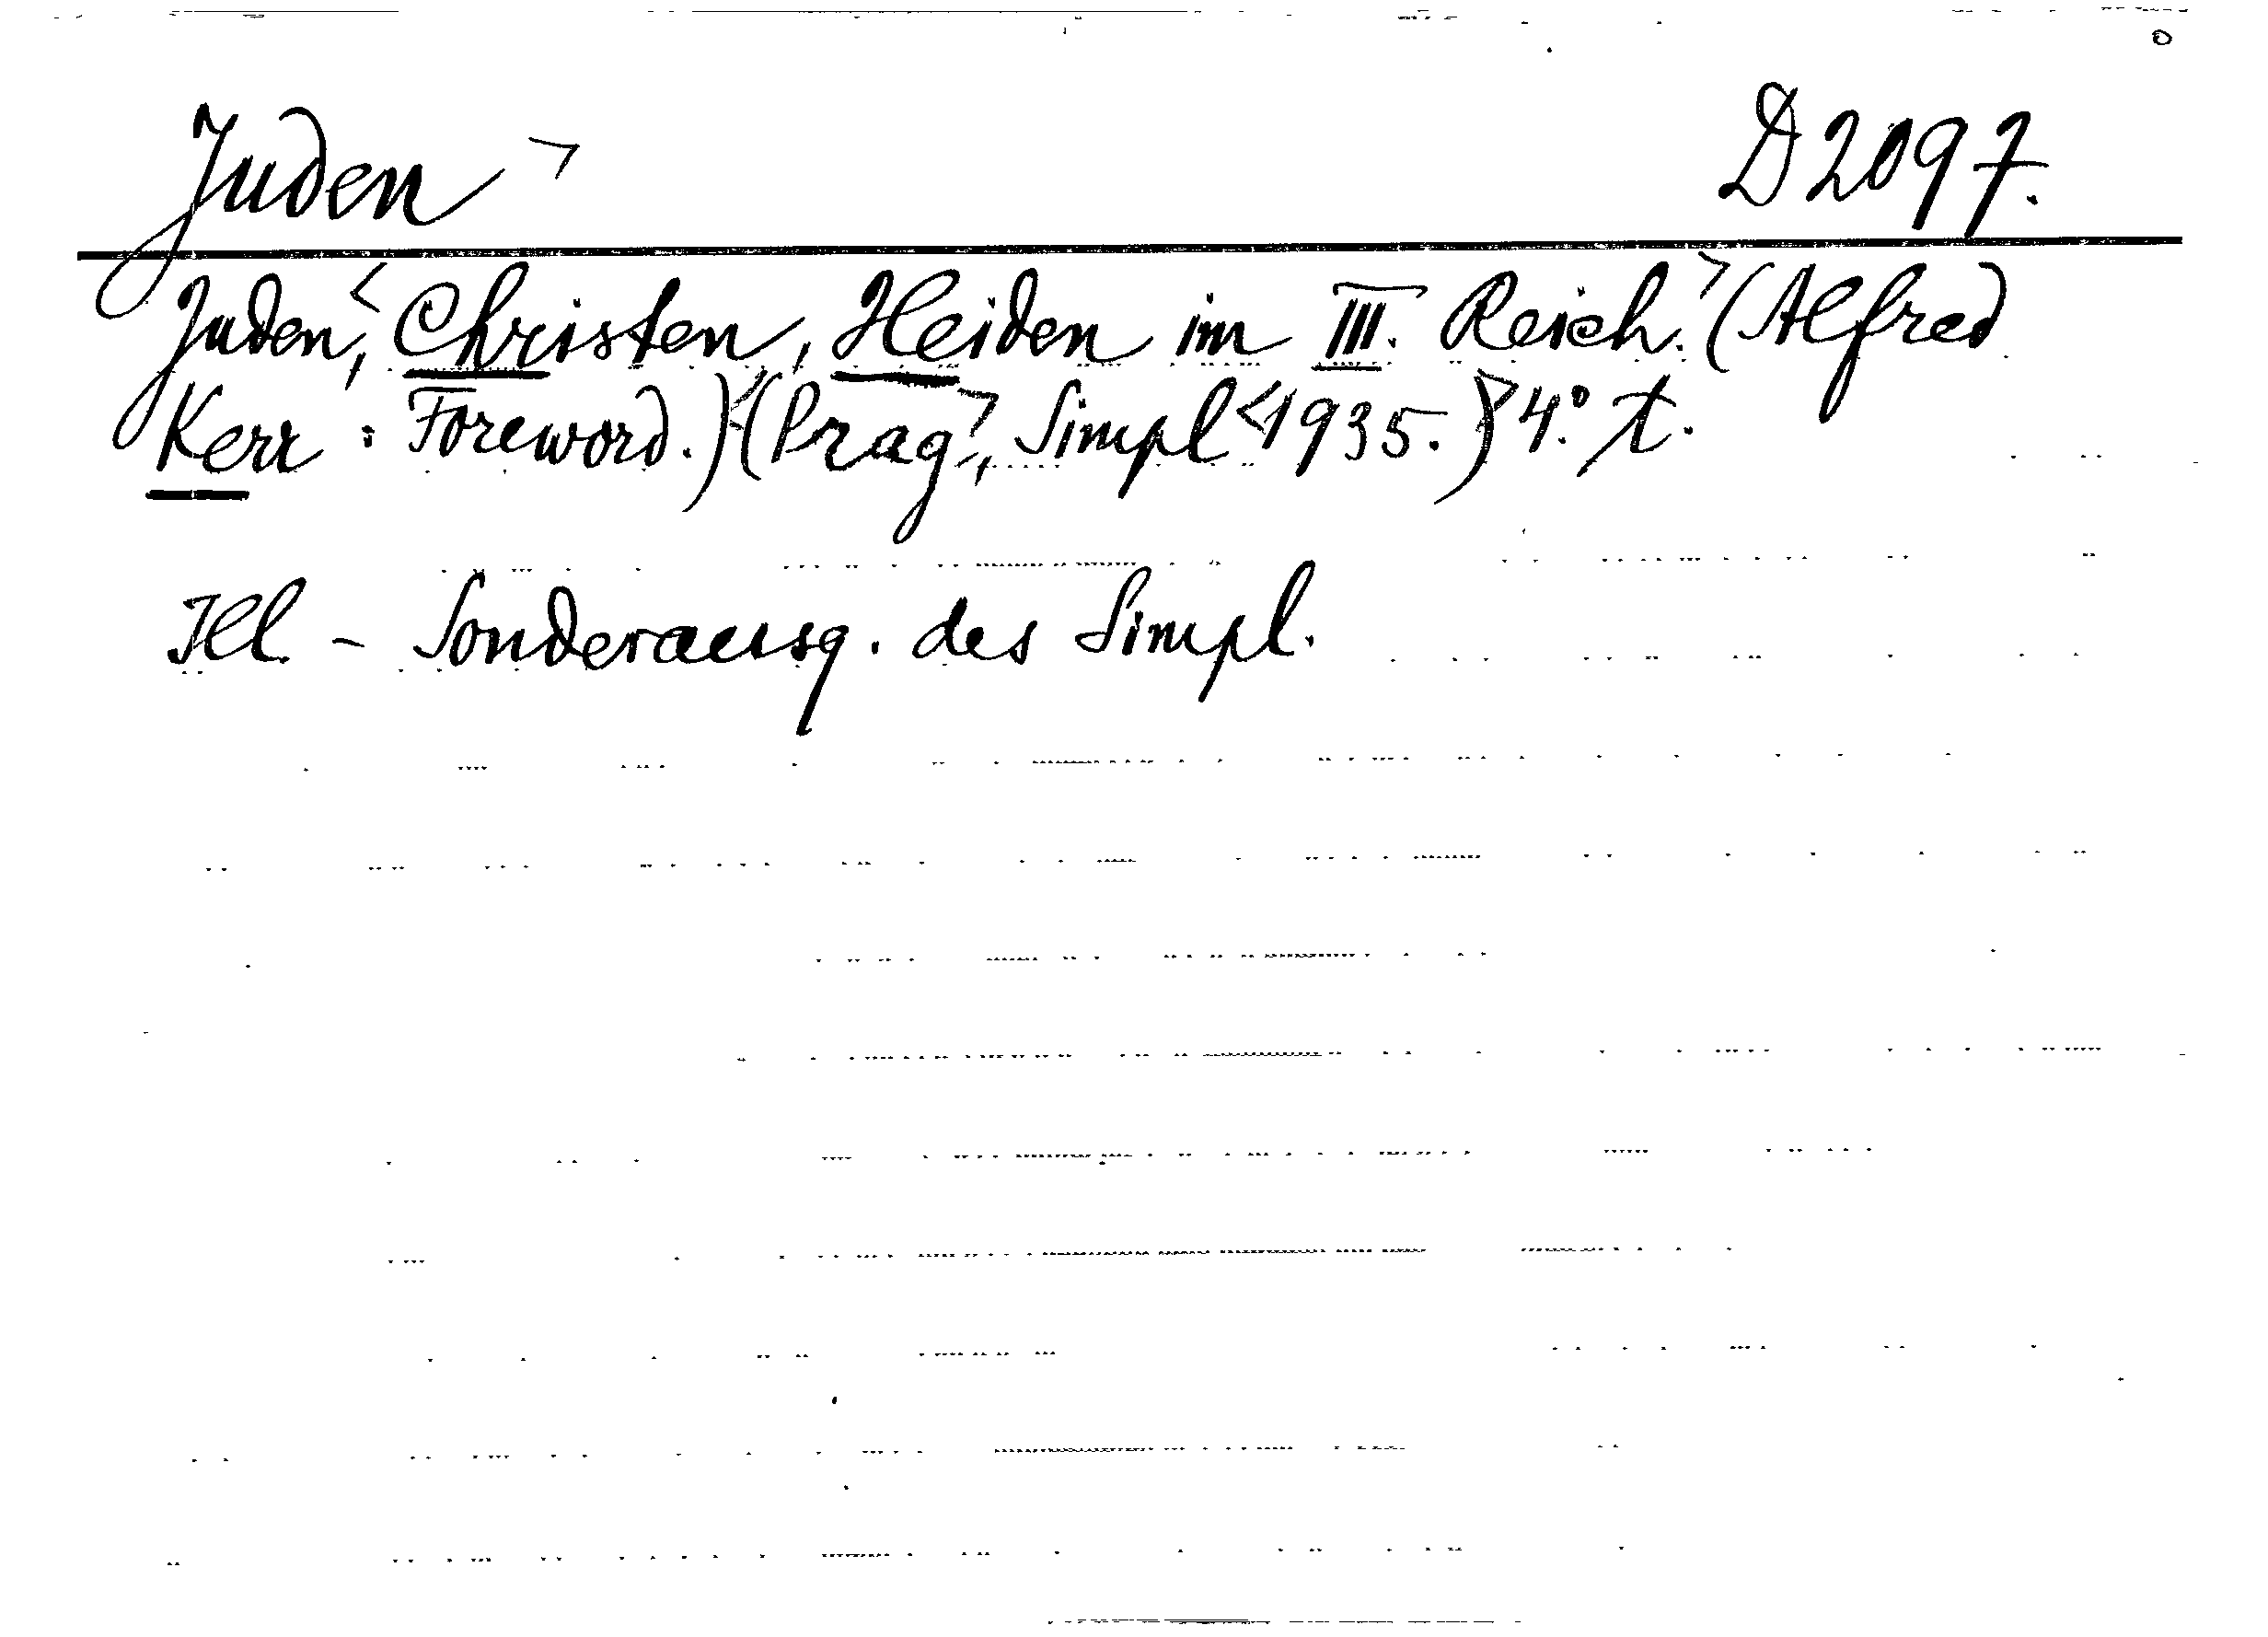 Juden > D2097.
Juden,< Christen, Heiden im III. Reich.> (Alfred
Kerr : Foreword.) <(Prag>, Simpl <1935.)> 4.° t.
Ill. - Sonderausg. des Simpl.